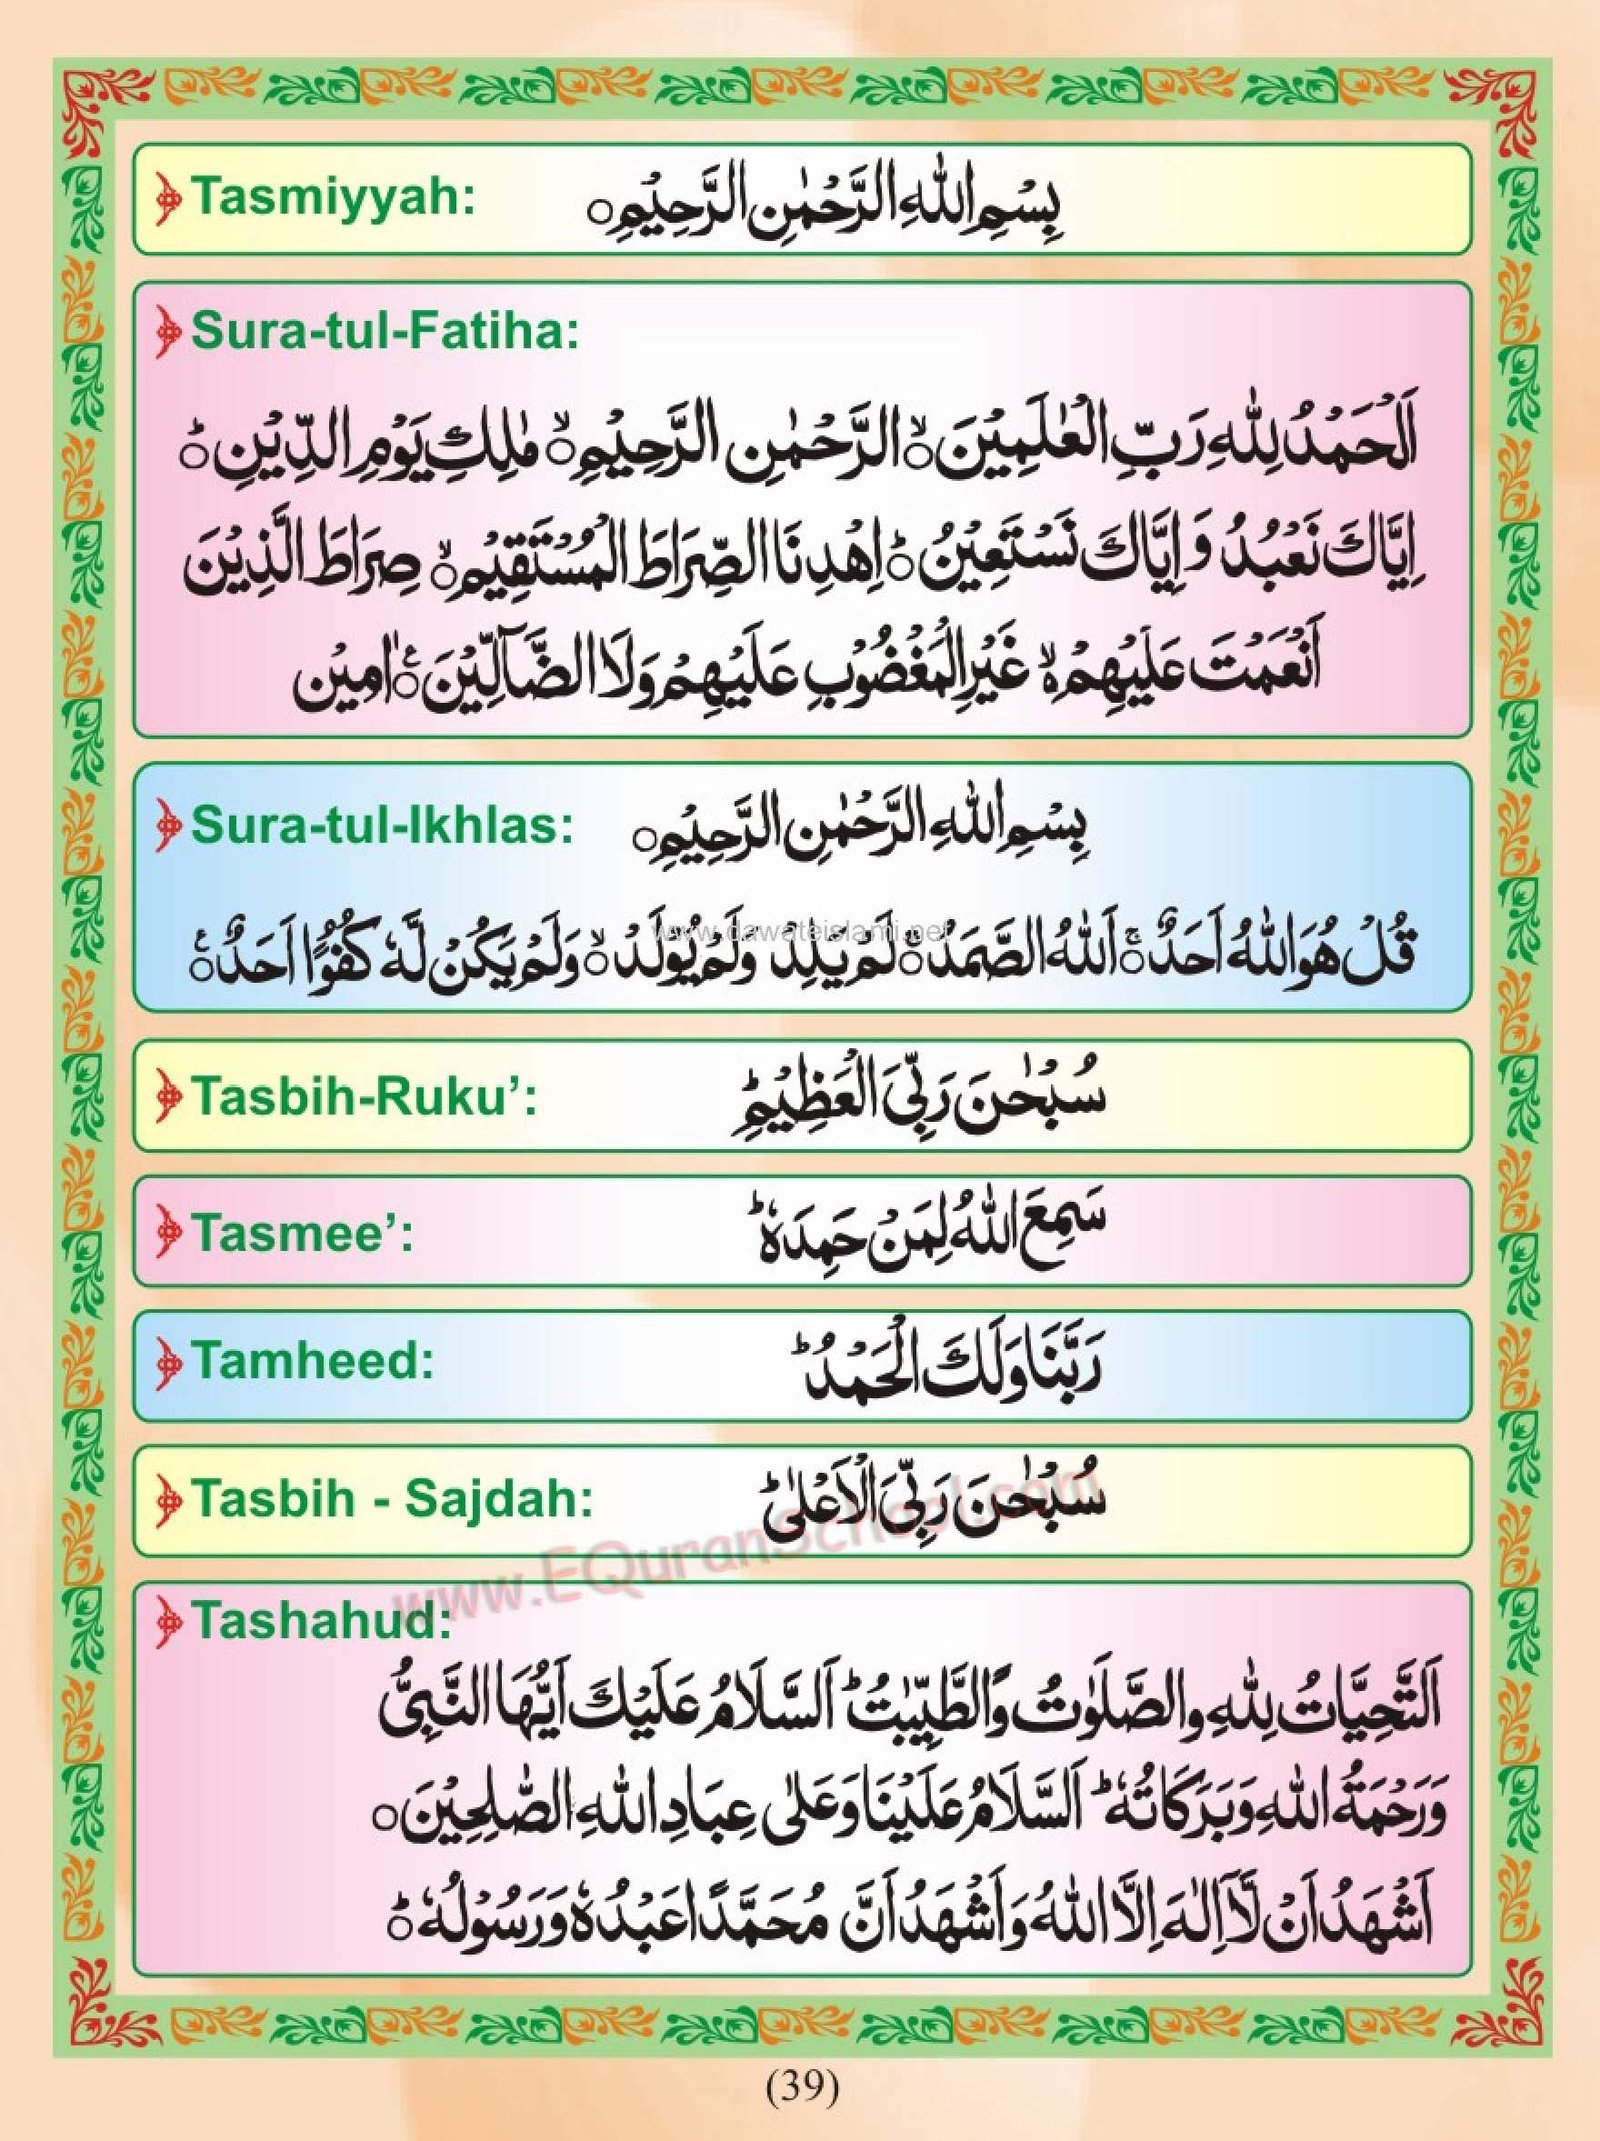 Tasmiyyah: بِسْمِ اللّٰهِ الرَّحْمٰنِ الرَّحِيْمِ○
Sura-tul-Fatiha:
اَلْحَمْدُ لِلّٰهِ رَبِّ الْعٰلَمِيْنَ○ۙ الرَّحْمٰنِ الرَّحِيْمِ○ۙ مٰلِكِ يَوْمِ الدِّيْنِ○ؕ
اِيَّاكَ نَعْبُدُ وَ اِيَّاكَ نَسْتَعِيْنُ○ؕ اِهْدِنَا الصِّرَاطَ الْمُسْتَقِيْمِ○ۙ صِرَاطَ الَّذِيْنَ
اَنْعَمْتَ عَلَيْهِمْ ۙ۬ غَيْرِ الْمَغْضُوْبِ عَلَيْهِمْ وَلَا الضَّآلِّيْنَ○ اٰمِيْن
Sura-tul-Ikhlas: بِسْمِ اللّٰهِ الرَّحْمٰنِ الرَّحِيْمِ○
قُلْ هُوَ اللّٰهُ اَحَدٌ○ۚ اَللّٰهُ الصَّمَدُ○ۚ لَمْ يَلِدْ وَلَمْ يُوْلَدْ○ۙ وَلَمْ يَكُنْ لَّهٗ كُفُوًا اَحَدٌ○
www.dawateislami.net
Tasbih-Ruku’: سُبْحٰنَ رَبِّىَ الْعَظِيْمِؕ
Tasmee’: سَمِعَ اللّٰهُ لِمَنْ حَمِدَهٗؕ
Tamheed: رَبَّنَا وَلَكَ الْحَمْدُؕ
Tasbih - Sajdah: سُبْحٰنَ رَبِّىَ الْاَعْلٰىؕ
www.EQuranSchool.com
Tashahud:
اَلتَّحِيَّاتُ لِلّٰهِ والصَّلَوٰتُ وَالطَّيِّبٰتُؕ اَلسَّلَامُ عَلَيْكَ اَيُّهَا النَّبِىُّ
وَرَحْمَةُ اللّٰهِ وَبَرَكَاتُهٗؕ اَلسَّلَامُ عَلَيْنَا وَعَلٰى عِبَادِ اللّٰهِ الصّٰلِحِيْنَ○
اَشْهَدُ اَنْ لَّآ اِلٰهَ اِلَّا اللّٰهُ وَاَشْهَدُ اَنَّ مُحَمَّدًا عَبْدُهٗ وَرَسُوْلُهٗ○ؕ
(39)